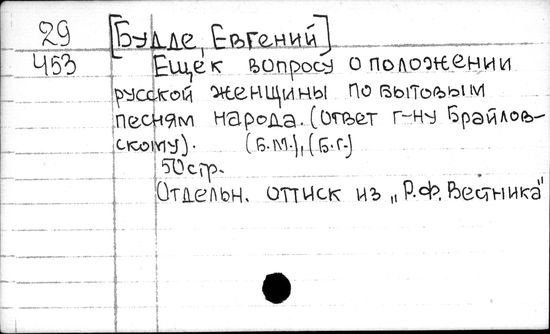 29 [Будде, Евгений]
453 Ещек вопросу о положении
русской женщины по бытовым
песням народа. (ответ г-ну Брайлов-
скому). (б.м.), (б.г.)
50 стр.
Отдельн. оттиск из „Р.Ф. Вестника"